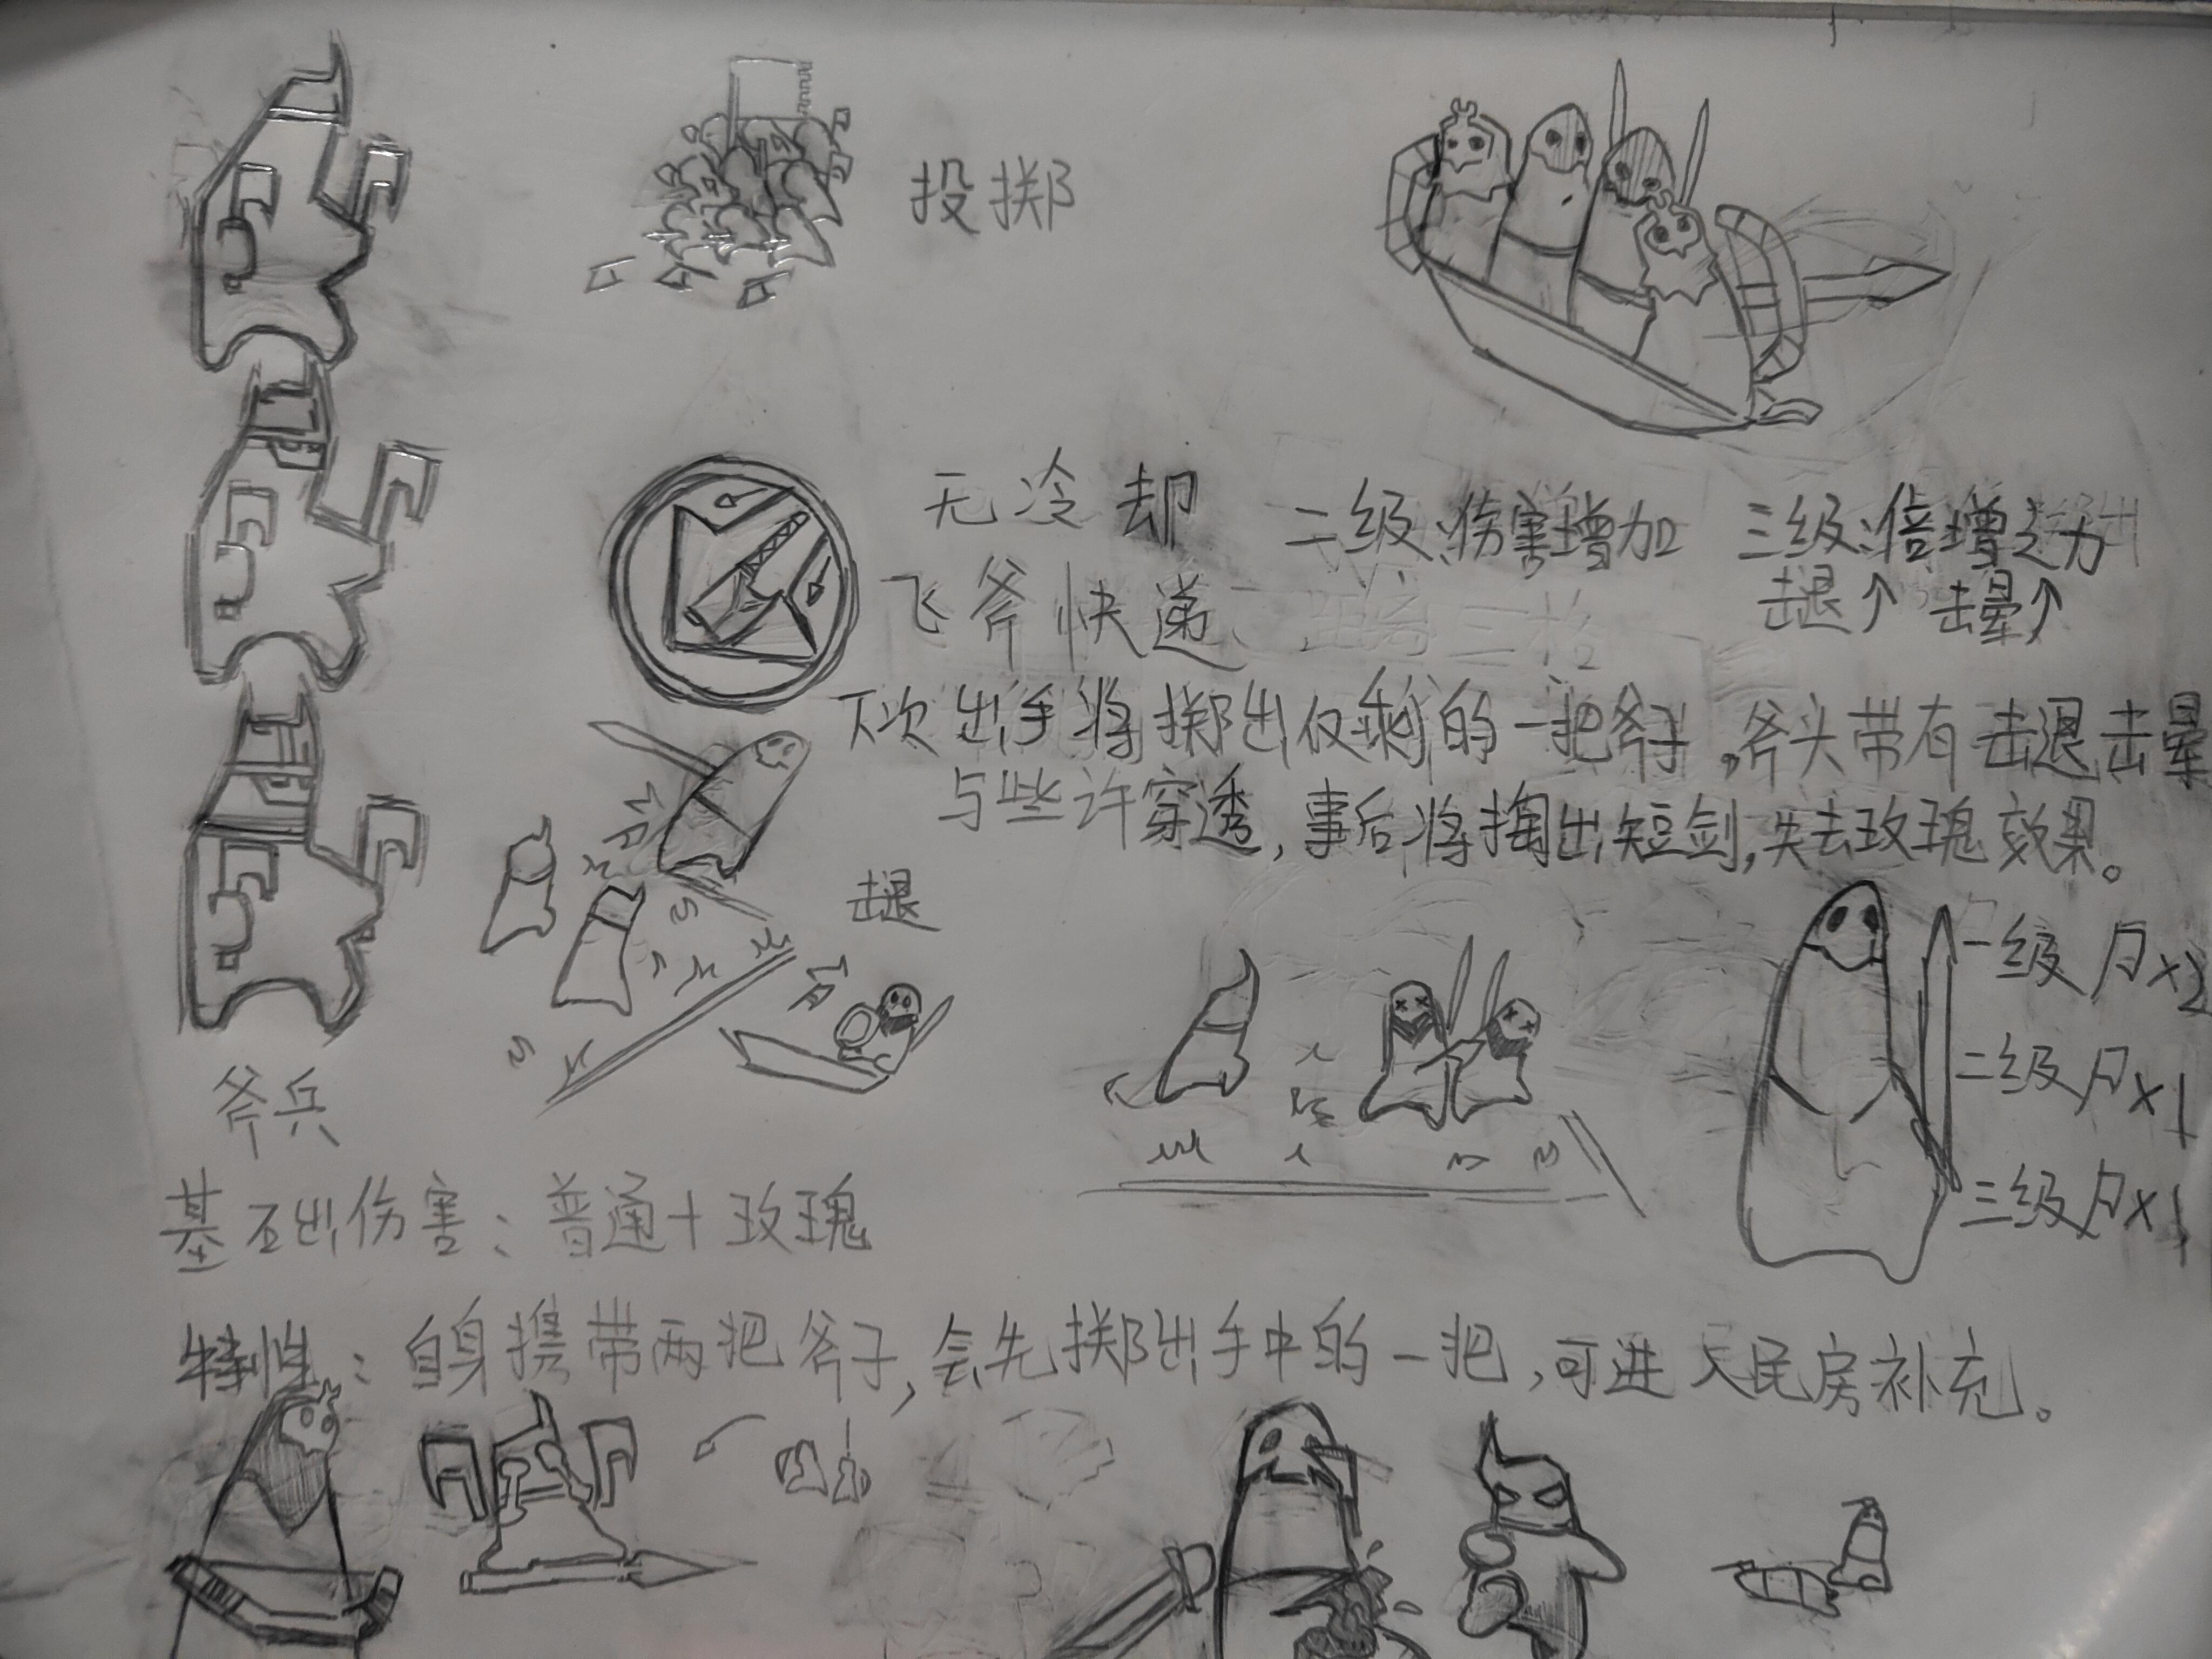 投掷
无冷却 二级:伤害增加 三级:倍增之力
飞斧快递 击退↑ 击晕↑
下次出手将掷出仅剩的一把斧子,斧头带有击退击晕
与些许穿透,事后将掏出短剑,失去玫瑰效果。
击退
一级 ×2
二级 ×1
三级 ×1
斧兵
基础伤害:普通+玫瑰
特性:自身携带两把斧子,会先掷出手中的一把,可进入民房补充。